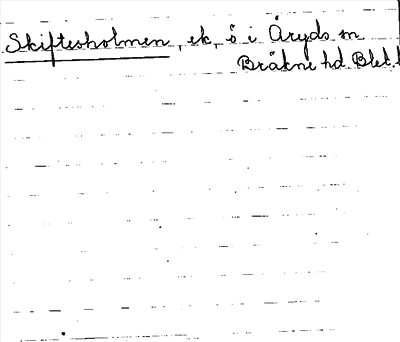 Skiftesholmen, ek, ö i Åryds sn
Bräkne hd. Blek. l